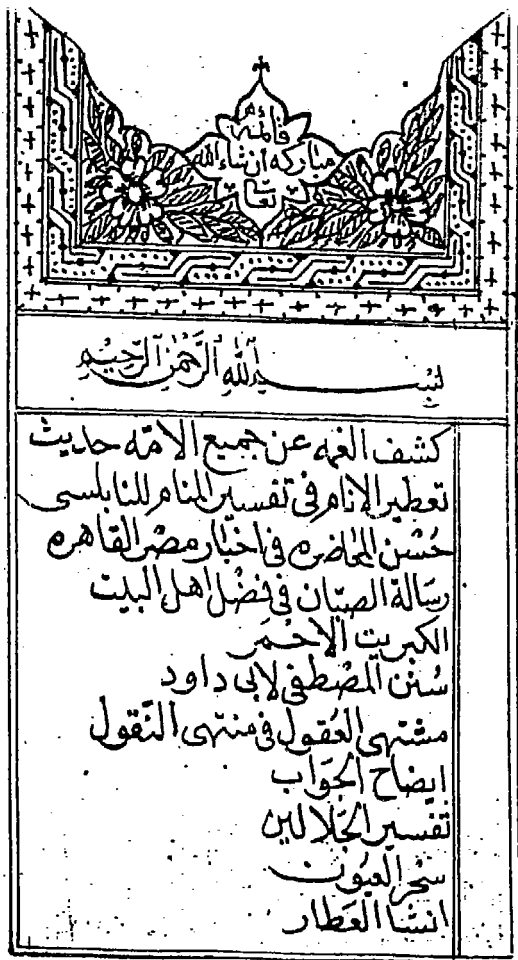 قائمه
مباركه ان شاء الله
تعا
بسم الله الرحمن الرحيم
كشف الغمه عن جميع الامه حديث
تعطير الانام فى تفسير المنام للنابلسى
حسن المحاضره فى اخبار مصر القاهره
رسالة الصبان فى فضل اهل البيت
الكبريت الاحمر
سنن المصطفى لابى داود
مشتهى العقول فى منتهى النقول
ايضاح الجواب
تفسير الجلالين
سحر العيون
انشا العطار